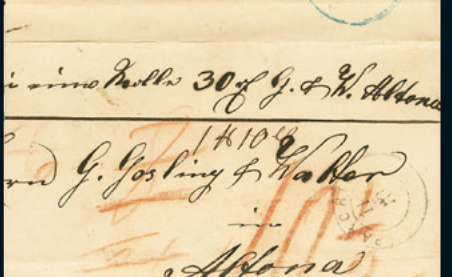 i eine Rolle 30 ℔ G. & W. Altona
1 ℔ 10
rn G. Gosling & Walter
in
Altona